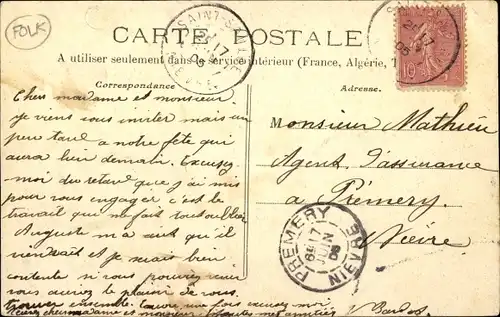 FOLK
CARTE POSTALE
A utiliser seulement dans le service intérieur (France, Algérie, T
Correspondance
Adresse.
Cher madame et monsieur
je viens vous inviter mais un
peu tard a notre fête qui
aura lieu demain. Excusez
moi du retard que j'ai mis
pour vous engager c'est le
travail qui me fait tout oublier
Auguste m'a dit qu'il
viendrait et je serais bien
contente si vous pouviez
vous auriez le plaisir de vous
trouver ensemble. Encore une fois excusez moi
Recevez cher madame et monsieur toutes mes amitiés
Monsieur Mathieu
Agent d'assurance
a Prémery
Nièvre
PREMERY
17
JUIN
05
NIEVRE
10